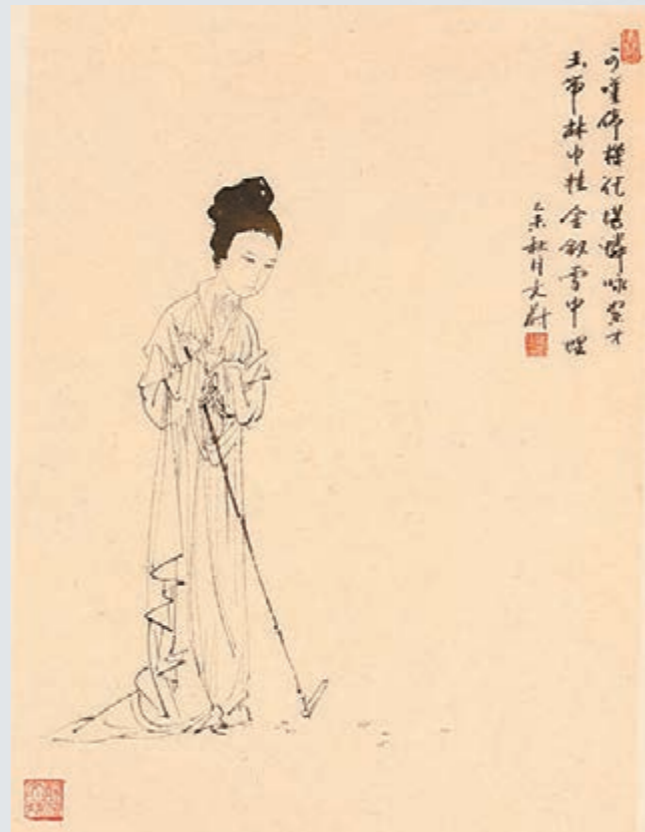 可嘆停機德堪憐咏絮才
玉帶林中掛金釵雪中埋
乙未秋月文蔚